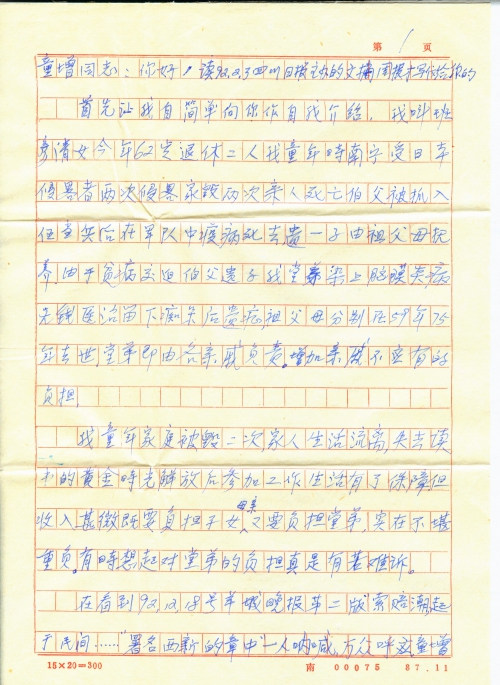 第 1 页
童增同志：你好！读92.2.3四川日报主办的文摘周报才写信给你的
首先让我自简单向你作自我介绍，我叫班
清女今年62岁退休工人我童年时南宁受日本
侵略者两次侵略家毁两次亲人死亡伯父被抓入
伍当兵后在军队中疫病死去遗一子由祖父母抚
养，由于贫病交迫伯父遗子我堂弟染上脑膜炎病
无钱医治留下痴呆后遗症，祖父母分别在59年75
年去世，堂弟即由各亲戚负责。增加亲戚不应有的
负担。
我童年家庭被毁二次，家人生活流离，失去读
书的黄金时光解放后参加工作生活有了保障但
收入甚微既要负担子女母亲，又要负担堂弟，实在不堪
重负。有时想起对堂弟的负担真是有苦难诉。
在看到92.12.18号羊城晚报第二版"索赔潮，起
于民间……"署名西新的章中"一人呐喊，万众呼应童增
15×20=300
南 00075 87.11